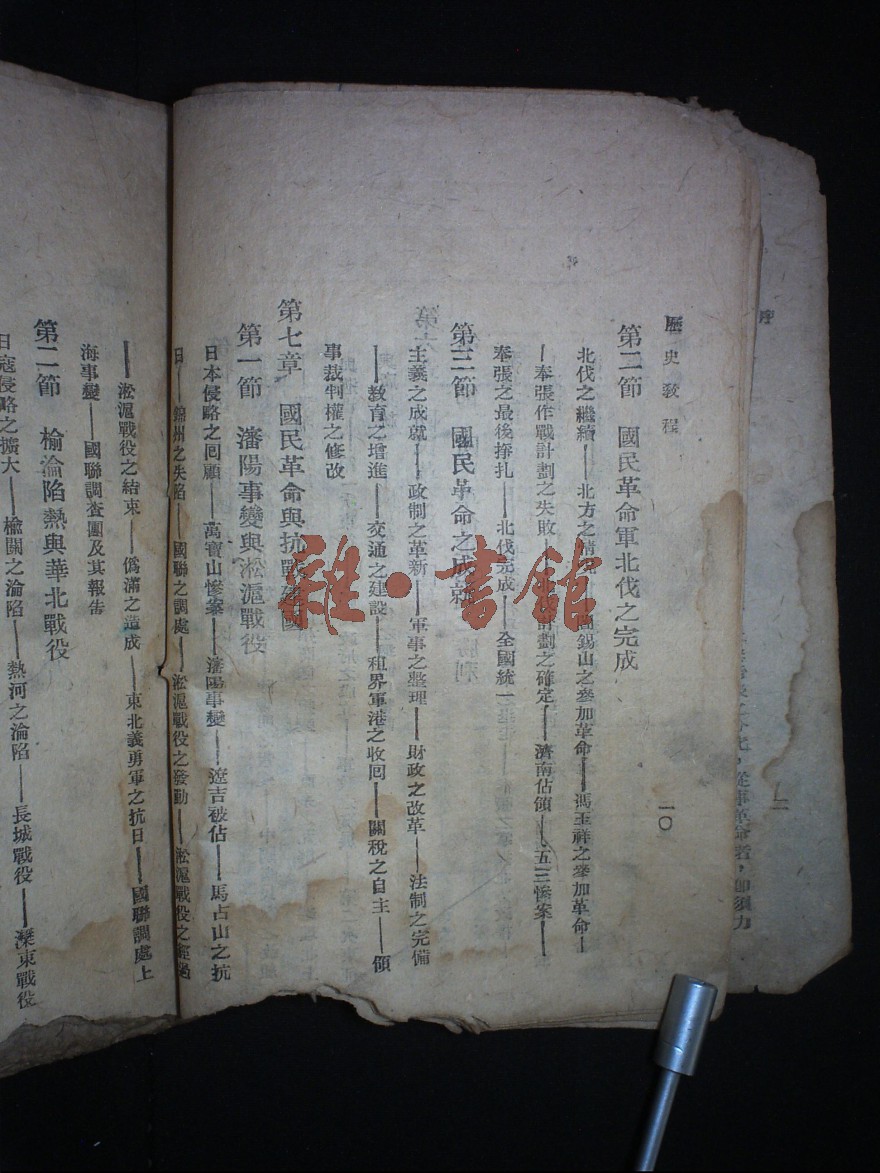 歷史敎程
一〇
第二節　國民革命軍北伐之完成
北伐之繼續——北方之情 錫山之參加革命——馮玉祥之參加革命—
—奉張作戰計劃之失敗 計劃之確定——濟南佔領——五三慘案——
奉張之最後掙扎——北伐完成——全國統一
第三節　國民革命之成就
主義之成就——政制之革新——軍事之整理——財政之改革——法制之完備
——敎育之增進——交通之建設——租界軍港之收回——關稅之自主——領
事裁判權之修改
第七章　國民革命與抗戰建國
第一節　瀋陽事變與淞滬戰役
日本侵略之回顧——萬寶山慘案——瀋陽事變——遼吉被佔——馬占山之抗
日——錦州之失陷——國聯之調處——淞滬戰役之發動——淞滬戰役之經過
——淞滬戰役之結束——僞滿之造成——東北義勇軍之抗日——國聯調處上
海事變——國聯調查團及其報告
第二節　榆淪陷熱與華北戰役
日寇侵略之擴大——榆關之淪陷——熱河之淪陷——長城戰役——灤東戰役
序
二
從事革命者，卽須力
雜·書館